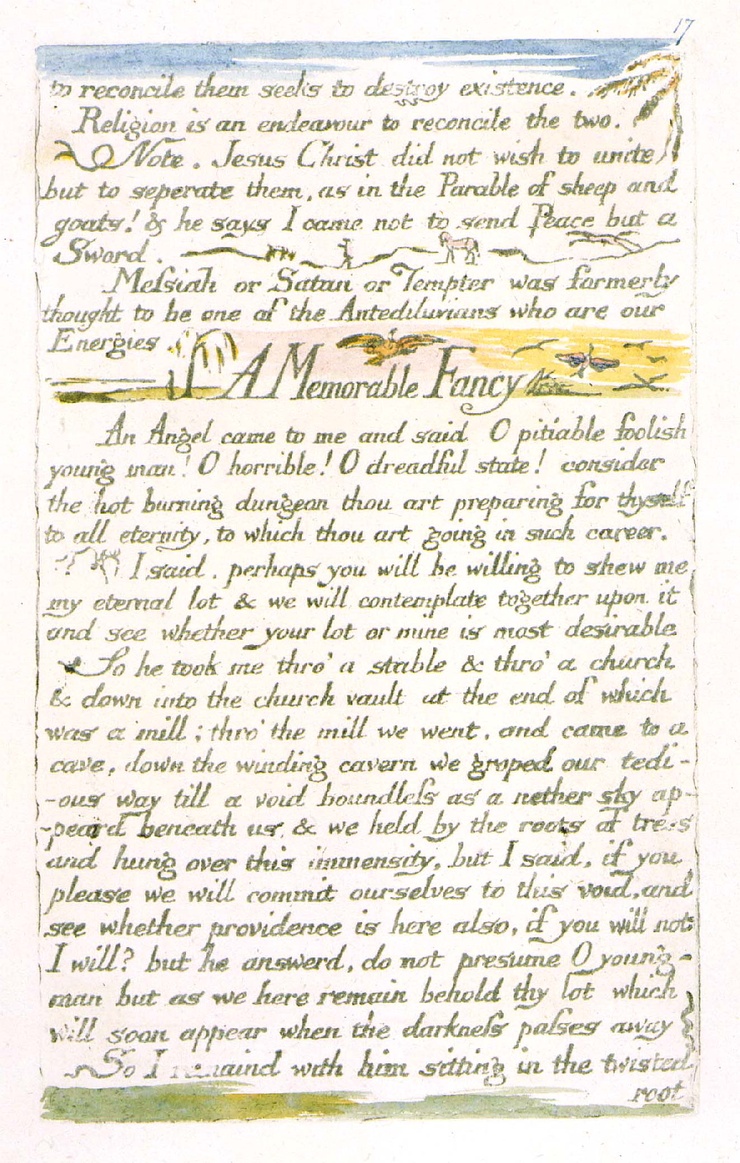 17
to reconcile them seeks to destroy existence.
Religion is an endeavour to reconcile the two.
Note. Jesus Christ did not wish to unite
but to seperate them, as in the Parable of sheep and
goats! & he says I came not to send Peace but a
Sword.
Meſsiah or Satan or Tempter was formerly
thought to be one of the Antediluvians who are our
Energies
A Memorable Fancy
An Angel came to me and said O pitiable foolish
young man! O horrible! O dreadful state! consider
the hot burning dungeon thou art preparing for thyself
to all eternity, to which thou art going in such career.
I said. perhaps you will be willing to shew me
my eternal lot & we will contemplate together upon it
and see whether your lot or mine is most desirable
So he took me thro' a stable & thro' a church
& down into the church vault at the end of which
was a mill; thro' the mill we went, and came to a
cave, down the winding cavern we groped our tedi-
-ous way till a void boundleſs as a nether sky ap-
-peard beneath us, & we held by the roots of trees
and hung over this immensity, but I said, if you
please we will commit ourselves to this void, and
see whether providence is here also, if you will not
I will? but he answerd, do not presume O young-
man but as we here remain behold thy lot which
will soon appear when the darkneſs paſses away
So I remaind with him sitting in the twisted
root